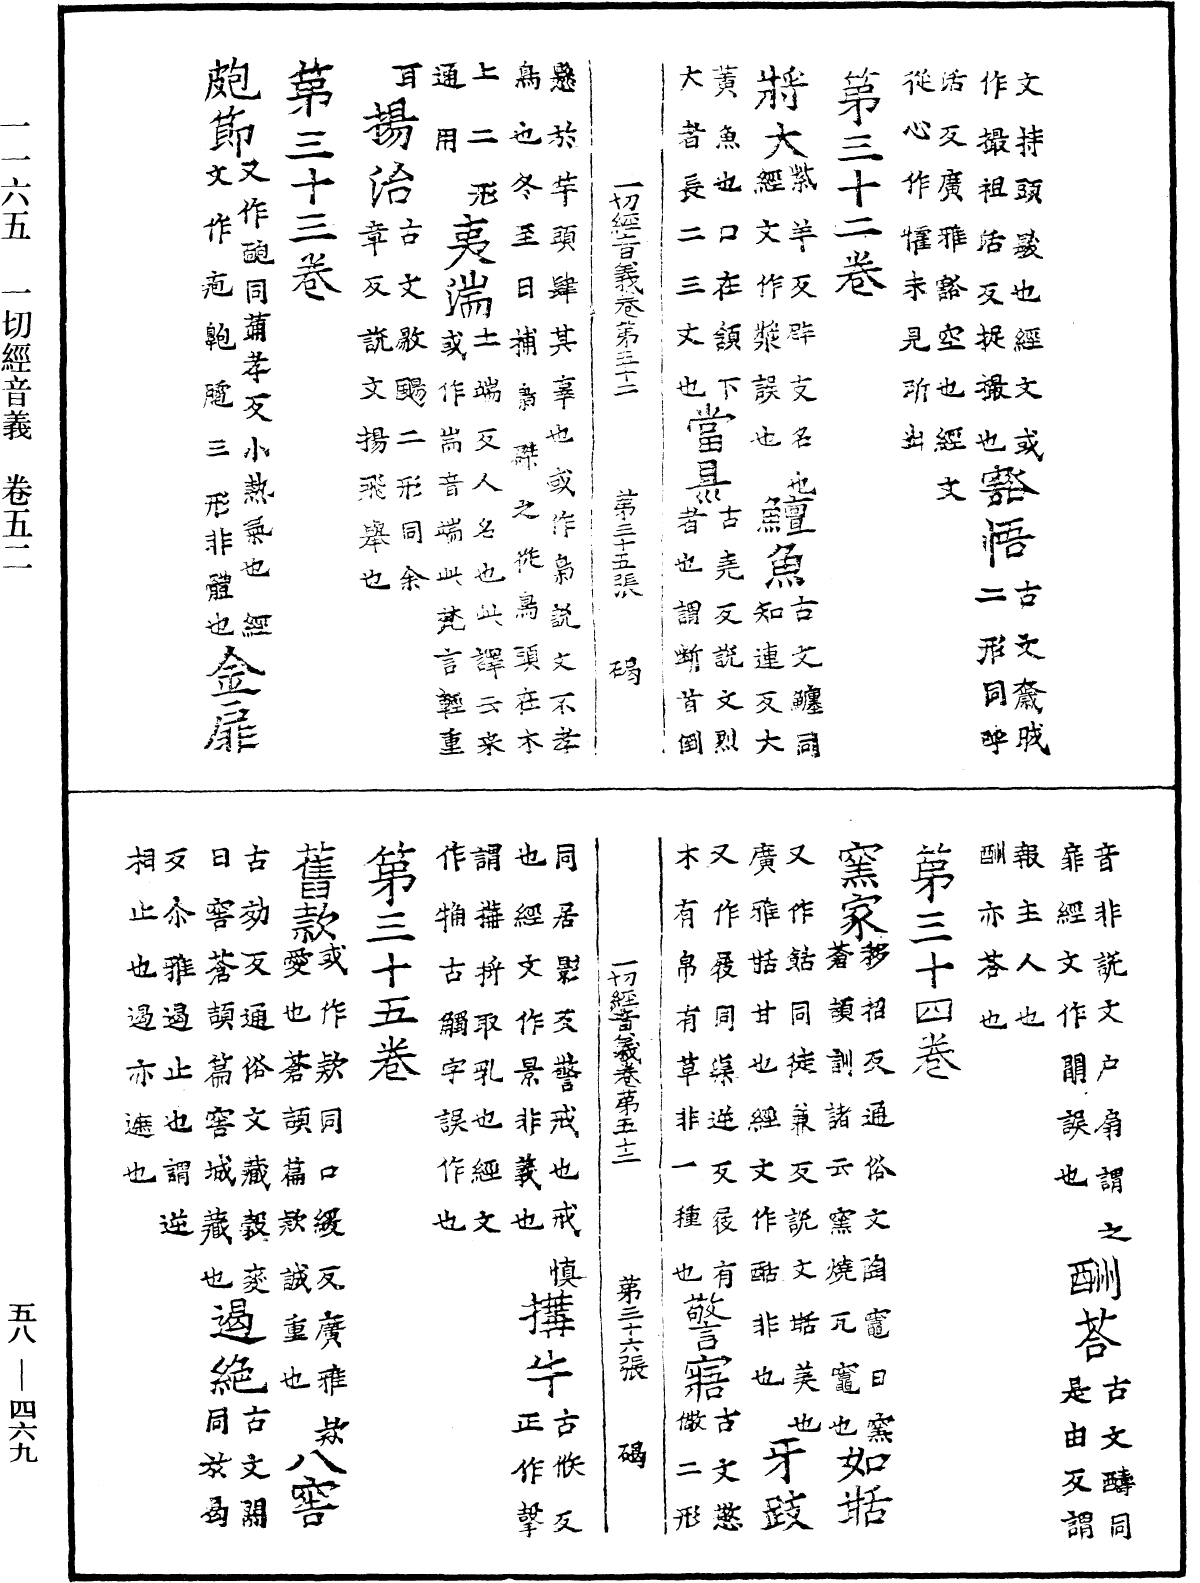 文持頭髮也經文或
作撮祖活反捉撮也
豁悟
古文
二形同呼
活反廣雅豁空也經文
從心作懽未見所出
第三十二卷
將大
紫羊反辟支名也
經文作漿誤也
鱣魚
古文鱣同
知連反大
黃魚也口在頷下
大者長二三丈也
當㬎
古堯反説文烈
者也謂斷首倒
一切經音義卷第五十二
第三十五張
碣
懸於竿頭肆其辜也或作梟説文不孝
鳥也冬至日捕梟磔之從鳥頭在木
上二形
通用
夷湍
土端反人名也此譯云來
或作耑音端此梵言輕重
耳
揚治
古文敭颺二形同余
章反説文揚飛舉也
第三十三卷
皰節
又作皰同蒲孝反小熱氣也經
文作疱皰䐔三形非體也
金扉
音非説文户扇謂之
扉經文作閗誤也
酬荅
古文醻同
是由反謂
報主人也
酬亦荅也
第三十四卷
窯家
移招反通俗文陶竈曰窯
蒼頡訓詁云窯燒瓦竈也
如甛
又作䑚同徒兼反説文甛美也
廣雅甛甘也經文作酤非也
牙跂
又作屐同渠逆反屐有
木有帛有草非一種也
警寤
古文憼
儆二形
一切經音義卷第五十二
第三十六張
碣
同居影反警戒也戒慎
也經文作景非義也
搆牛
古候反
正作㝅
謂搆捋取乳也經文
作㨶古觸字誤作也
第三十五卷
舊款
或作欵同口緩反廣雅款
愛也蒼頡篇款誠重也
八窖
古効反通俗文藏穀麥
曰窖蒼頡篇窖城藏也
遏絶
古文閼
同於曷
反尒雅遏止也謂逆
相止也遏亦遮也
一一六五　一切經音義　卷五二
五八—四六九